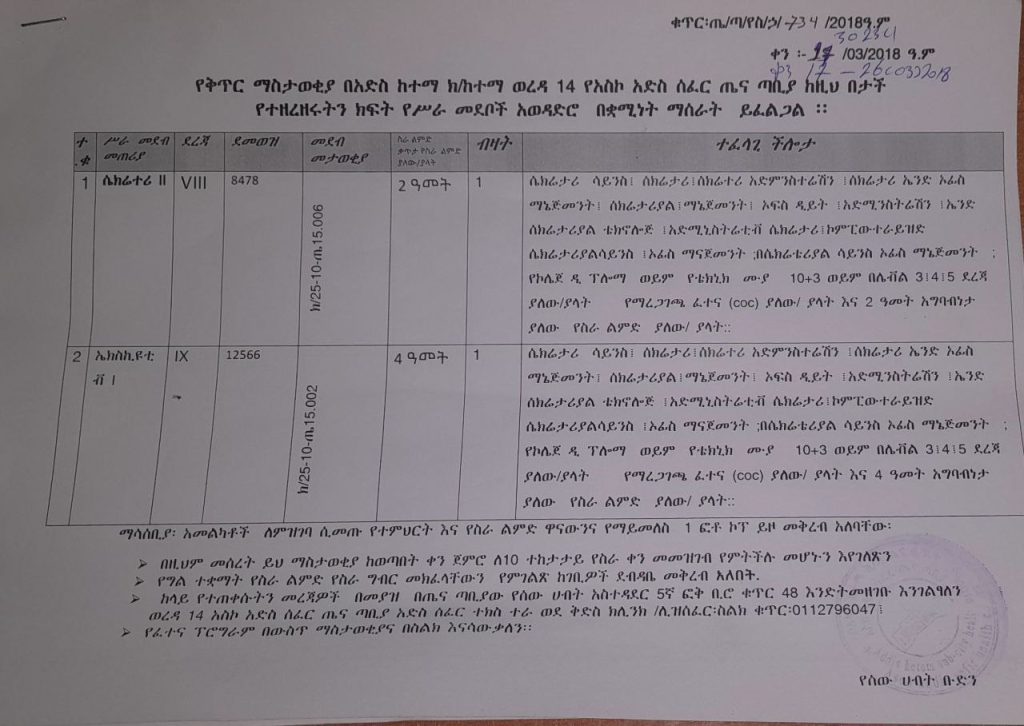 ቁጥር፡ጤ/ጣ/የስ/ኃ/-734 /2018ዓ.ም
302341
ቀን ፡- 17 /03/2018 ዓ.ም
ቀን 17 -26/03/2018
የቅጥር ማስታወቂያ በአድስ ከተማ ክ/ከተማ ወረዳ 14 የአስኮ አድስ ሰፈር ጤና ጣቢያ ከዚህ በታች
የተዘረዘሩትን ክፍት የሥራ መደቦች አወዳድሮ በቋሚነት ማሰራት ይፈልጋል ፡፡
ተ.ቁ ሥራ መደብ መጠሪያ ደረጃ ደመወዝ መደብ መታወቂያ ስራ ልምድ ቃጥታ የስራ ልምድ ያለው/ያላት ብዛት ተፈላጊ ችሎታ
1 ሴክሬተሪ II VIII 8478 ክ/25-10-ጤ.15.006 2 ዓመት 1
ሴክሬታሪ ሳይንስ፤ ሰክሬታሪ፤ሰክሬተሪ አድምንስተሬሽን ፤ሰክሬታሪ ኤንድ ኦፊስ
ማኔጅመንት፤ ሰክሬታሪያል፤ማኔጀመንት፤ ኦፍስ ዲይት ፤አድሚንስትሬሽን ፤ኤንድ
ሰክሬታሪያል ቴክኖሎጅ ፤አድሚኒስትሬቲቭ ሴክሬታሪ፤ኮምፒውተራይዝድ
ሴክሬታሪያልሳይንስ ፤ኦፊስ ማናጀመንት ;በሴክሬቴሪያል ሳይንስ ኦፊስ ማኔጅመንት ;
የኮሌጀ ዲ ፕሎማ ወይም የቴክኒክ ሙያ 10+3 ወይም በሌቭል 3፤4፤5 ደረጃ
ያለው/ያላት የማረጋገጫ ፈተና (coc) ያለው/ ያላት እና 2 ዓመት አግባብነታ
ያለው የስራ ልምድ ያለው/ ያላት፡፡
2 ኤክስኪዩቲቭ I IX 12566 ክ/25-10-ጤ.15.002 4 ዓመት 1
ሴክሬታሪ ሳይንስ፤ ሰክሬታሪ፤ሰክሬተሪ አድምንስተሬሽን ፤ሰክሬታሪ ኤንድ ኦፊስ
ማኔጅመንት፤ ሰክሬታሪያል፤ማኔጀመንት፤ ኦፍስ ዲይት ፤አድሚንስትሬሽን ፤ኤንድ
ሰክሬታሪያል ቴክኖሎጅ ፤አድሚኒስትሬቲቭ ሴክሬታሪ፤ኮምፒውተራይዝድ
ሴክሬታሪያልሳይንስ ፤ኦፊስ ማናጀመንት ;በሴክሬቴሪያል ሳይንስ ኦፊስ ማኔጅመንት ;
የኮሌጀ ዲ ፕሎማ ወይም የቴክኒክ ሙያ 10+3 ወይም በሌቭል 3፤4፤5 ደረጃ
ያለው/ያላት የማረጋገጫ ፈተና (coc) ያለው/ ያላት እና 4 ዓመት አግባብነታ
ያለው የስራ ልምድ ያለው/ ያላት፡፡
ማሳሰቢያ፡ አመልካቶች ለምዝገባ ሲመጡ የተምህርት እና የስራ ልምድ ዋናውንና የማይመለስ 1 ፎቶ ኮፕ ይዞ መቅረብ አለባቸው፡
➢ በዚህም መሰረት ይህ ማስታወቂያ ከወጣበት ቀን ጀምሮ ለ10 ተከታታይ የስራ ቀን መመዝገብ የምትችሉ መሆኑን እየገለጽን
➢ የግል ተቋማት የስራ ልምድ የስራ ግብር መክፈላቸውን የምገልጽ ከገቢዎች ደብዳቤ መቅረብ አለበት.
➢ ከላይ የተጠቀሱትን መረጃዎች በመያዝ በጤና ጣቢያው የሰው ሀብት አስተዳደር 5ኛ ፎቅ ቢሮ ቁጥር 48 እንድትመዘገቡ እንገልዓለን
ወረዳ 14 አስኮ አድስ ሰፈር ጤና ጣቢያ አድስ ሰፈር ተክስ ተራ ወደ ቅድስ ክሊንክ /ሊዝሰፈር፡ስልክ ቁጥር፡0112796047፤
➢ የፈተና ፕሮግራም በውስጥ ማስታወቂያና በስልክ እናሳውቃለን፡፡
የሰው ሀብት ቡድን